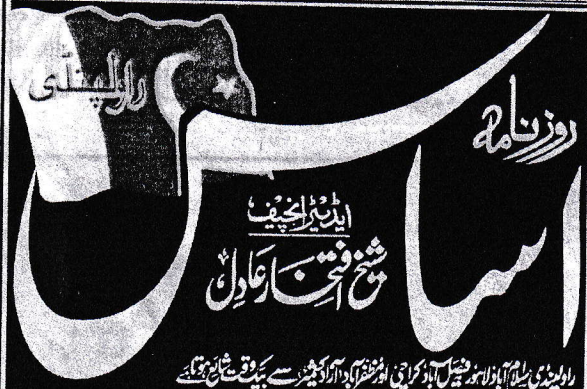 روزنامہ
اساس
راولپنڈی
ایڈیٹر انچیف
شیخ افتخار عادل
راولپنڈی، اسلام آباد، لاہور، فیصل آباد، کراچی اور مظفرآباد (آزاد کشمیر) سے بیک وقت شائع ہوتا ہے